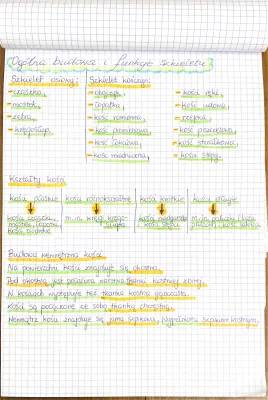 Ogólna budowa i funkcje szkieletu
Szkielet osiowy: Szkielet kończyn:
- czaszka, - obojczyk, - kości ręki,
- mostek, - łopatka, - kość udowa,
- żebra, - kość ramienna, - rzepka,
- kręgosłup. - kość promieniowa, - kość piszczelowa,
- kość łokciowa, - kość strzałkowa,
- kość miednicza, - kości stopy.
Kształty kości
kości płaskie kości różnokształtne kości krótkie kości długie
kości czaszki, m.in. kręgi kręgo- kości nadgarstka m.in. paliczki palca
mostek, żebra, słupa kości stępu
Budowa wewnętrzna kości
Na powierzchni kości znajduje się okostna.
Pod okostną jest położona warstwa tkanki kostnej zbitej.
W kościach występuje też tkanka kostna gąbczasta.
Kości są połączone ze sobą tkanką chrzęstną.
Wewnątrz kości znajduje się jama szpikowa, wypełniona szpikiem kostnym.